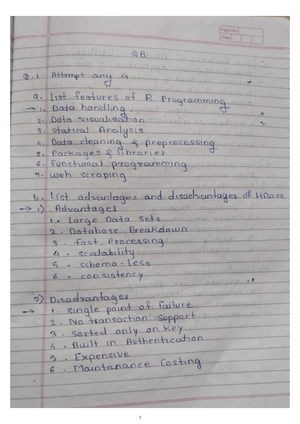 Page No.
Date
QB
Q.1 Attempt any 4
a. List features of R Programming
→ 1. Data handling
2. Data visualisation
3. statical Analysis
4. Data cleaning & preprocessing
5. Packages & libraries
6. functional programming
7. web scraping
b. List advantages and disadvantages of HBase
→ 1) Advantages
1. Large Data sets
2. Database Breakdown
3. fast Processing
4. scalability
5. schema-Less
6. consistency
2) Disadvantages
→ 1. single point of failure
2. No transaction support
3. Sorted only on Key
4. Built in Authentication
5. Expensive
6. Maintanance Costing
1